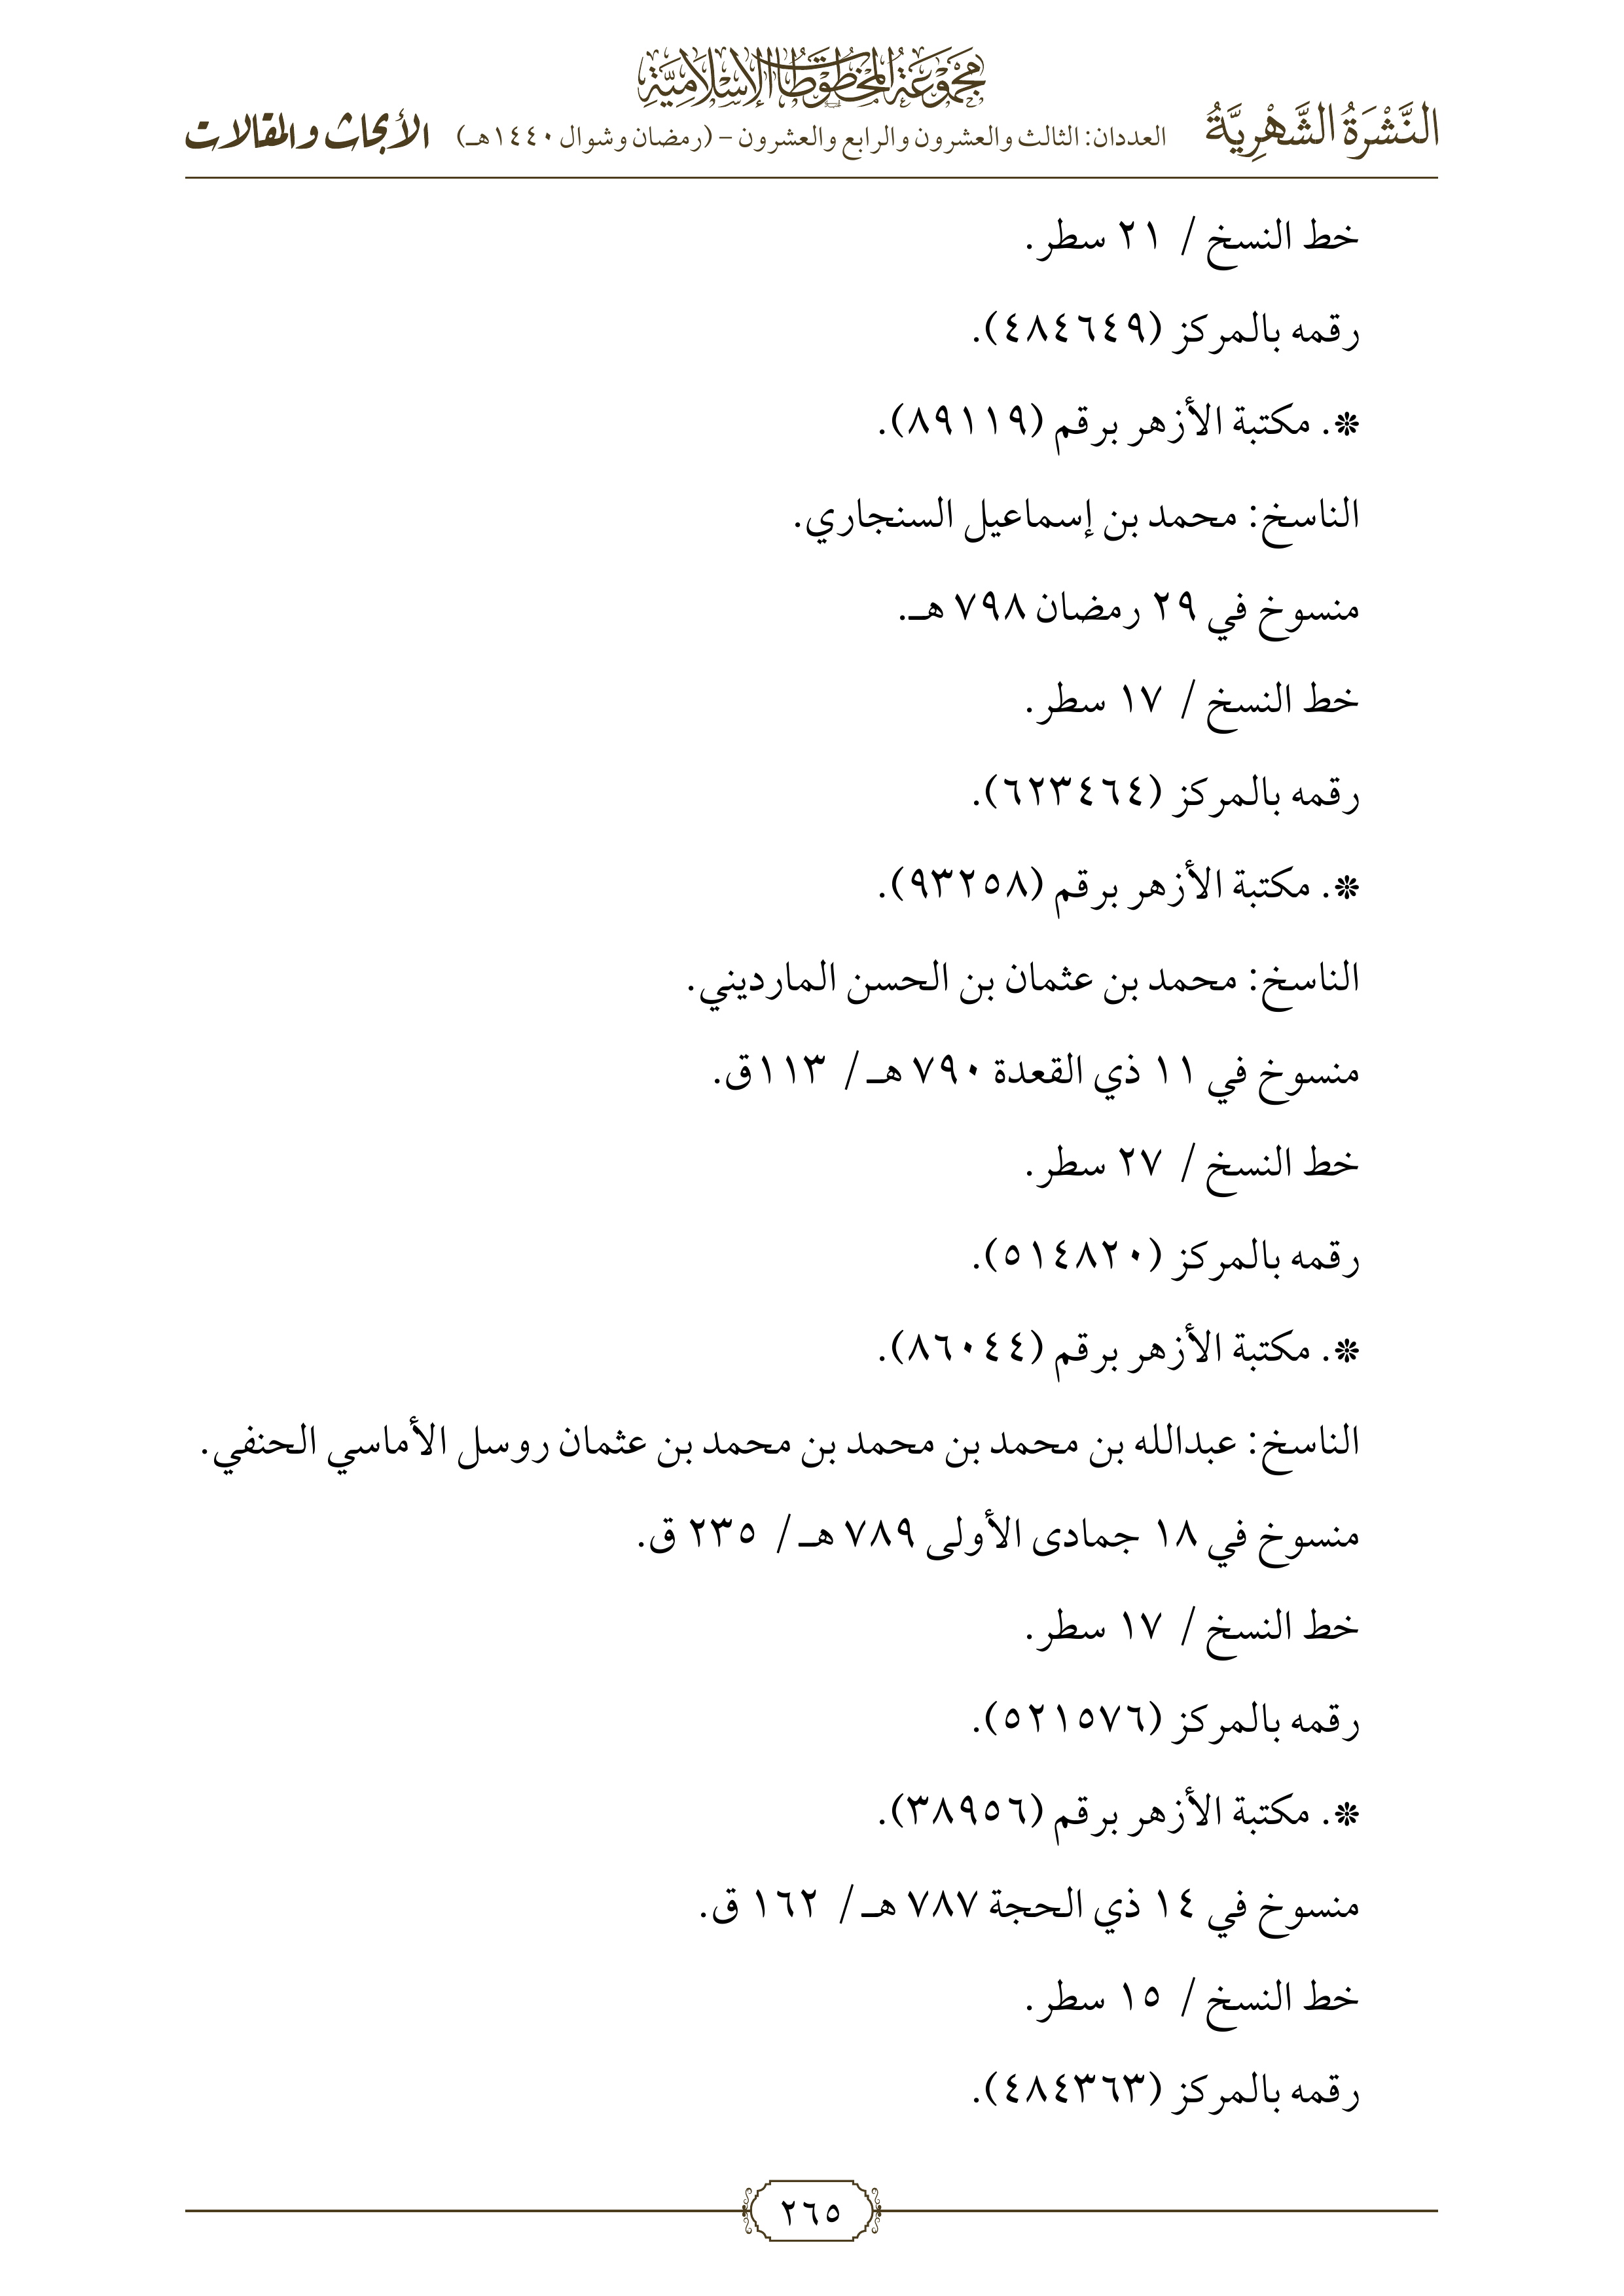 مجموعة المخطوطات الإسلامية
النَّشْرَةُ الشَّهْرِيَّةُ العددان: الثالث والعشرون والرابع والعشرون – (رمضان وشوال ١٤٤٠هـ) الأبحاث والمقالات
خط النسخ / ٢١ سطر.
رقمه بالمركز (٤٨٤٦٤٩).
❊. مكتبة الأزهر برقم (٨٩١١٩).
الناسخ: محمد بن إسماعيل السنجاري.
منسوخ في ٢٩ رمضان ٧٩٨ هـ.
خط النسخ / ١٧ سطر.
رقمه بالمركز (٦٢٣٤٦٤).
❊. مكتبة الأزهر برقم (٩٣٢٥٨).
الناسخ: محمد بن عثمان بن الحسن المارديني.
منسوخ في ١١ ذي القعدة ٧٩٠ هـ / ١١٣ق.
خط النسخ / ٢٧ سطر.
رقمه بالمركز (٥١٤٨٢٠).
❊. مكتبة الأزهر برقم (٨٦٠٤٤).
الناسخ: عبدالله بن محمد بن محمد بن محمد بن عثمان روسل الأماسي الحنفي.
منسوخ في ١٨ جمادى الأولى ٧٨٩ هـ / ٢٣٥ ق.
خط النسخ / ١٧ سطر.
رقمه بالمركز (٥٢١٥٧٦).
❊. مكتبة الأزهر برقم (٣٨٩٥٦).
منسوخ في ١٤ ذي الحجة ٧٨٧ هـ / ١٦٢ ق.
خط النسخ / ١٥ سطر.
رقمه بالمركز (٤٨٤٣٦٣).
٢٦٥